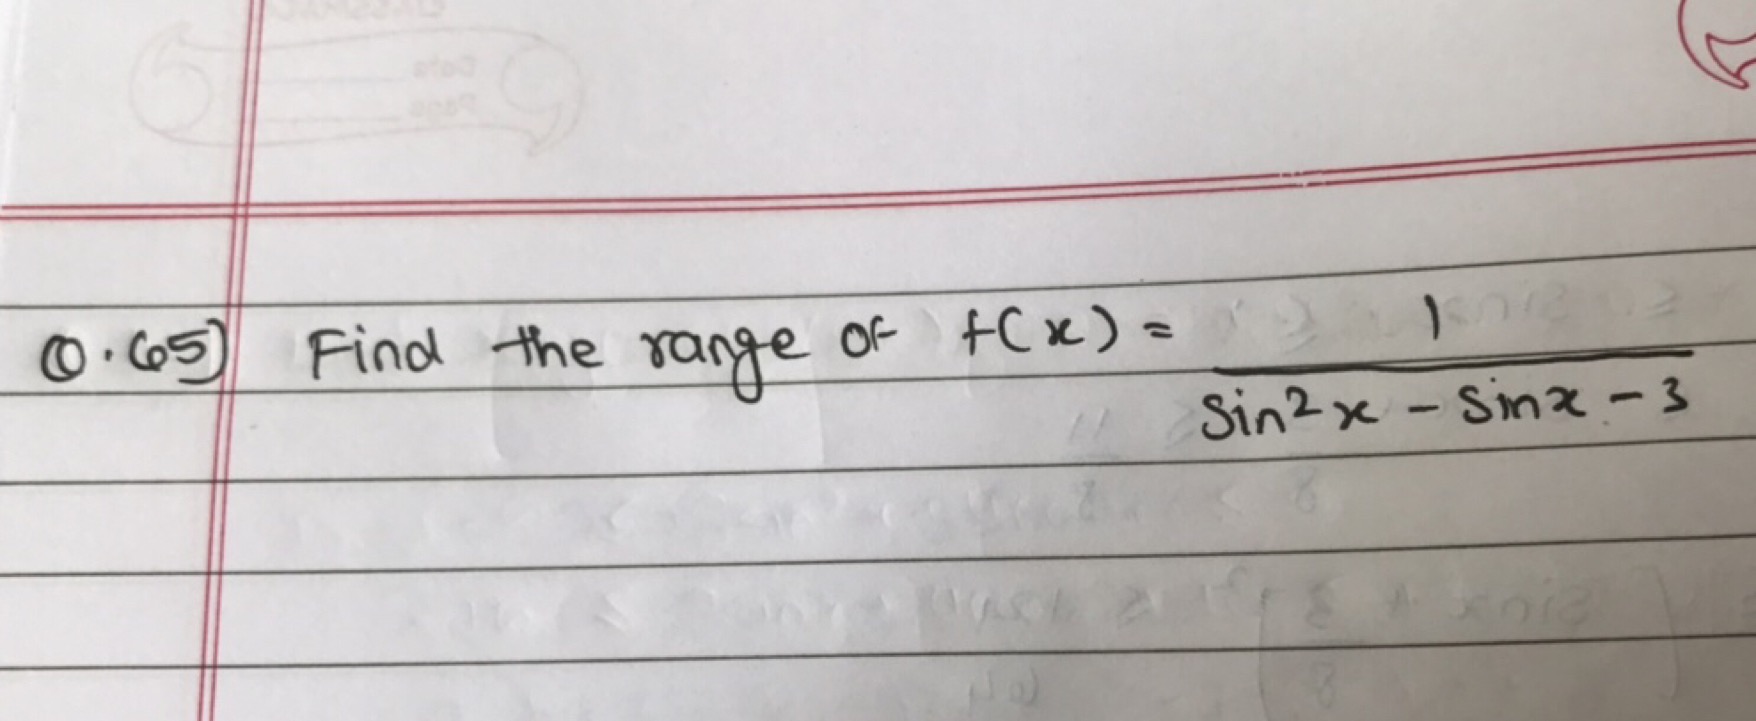 Q.65) Find the range of f(x) = 1 / (Sin²x - Sinx - 3)